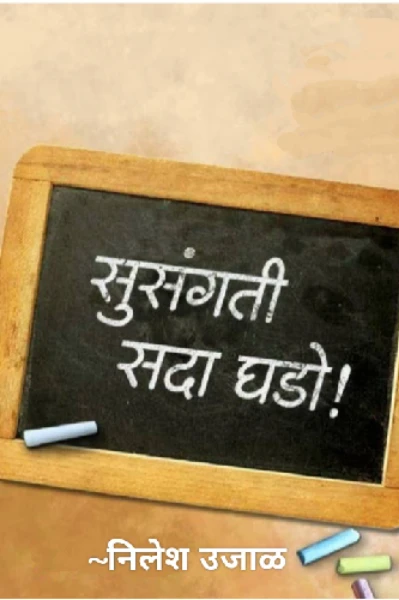 सुसंगती
सदा घडो!
~निलेश उजाळ